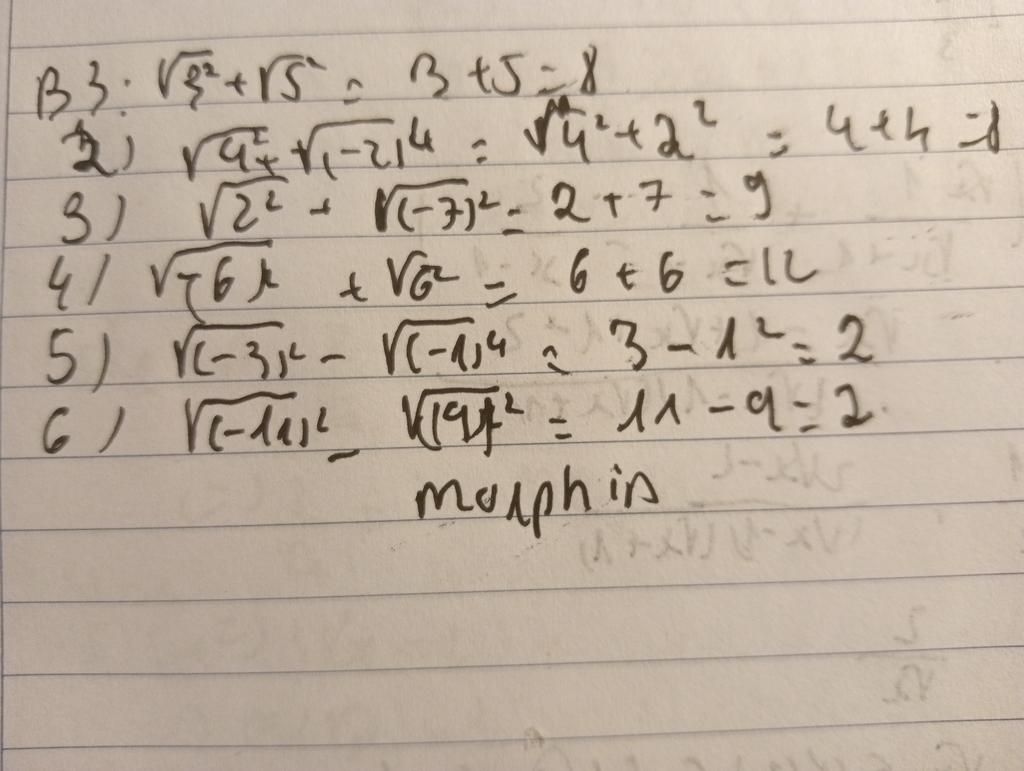 B3: √3² + √5² = 3 + 5 = 8
2) √4² + √(-2)⁴ = √4² + 2² = 4 + 4 = 8
3) √2² + √(-7)² = 2 + 7 = 9
4) √(-6)² + √6² = 6 + 6 = 12
5) √(-3)² - √(-1)⁴ = 3 - 1² = 2
6) √(-11)² - √(9)² = 11 - 9 = 2.
morphin